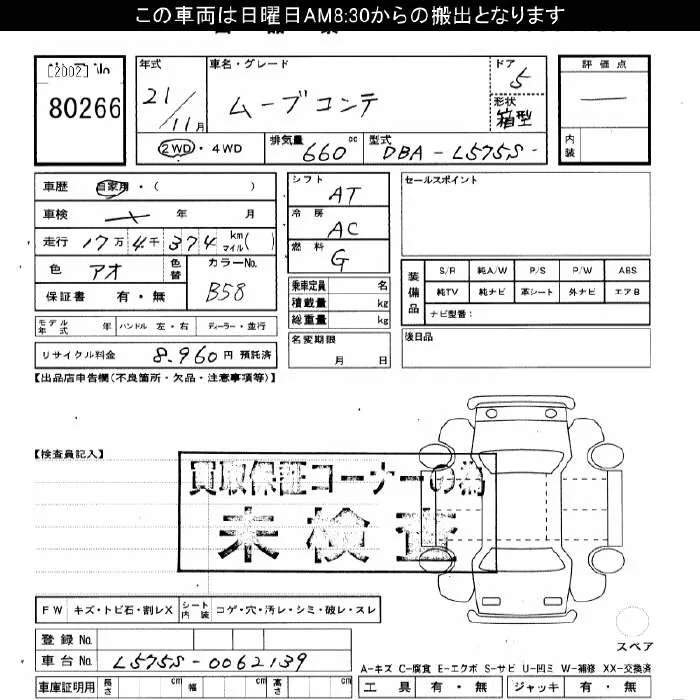 この車両は日曜日AM8:30からの搬出となります
[2002] No
80266
年式
21/11月
車名・グレード
ムーブコンテ
ドア
5
形状
箱型
評価点
内装
2WD・4WD
排気量 660 cc
型式 DBA-L575S-
車歴 自家用・( )
車検 年 月
走行 17万 4千 374 km マイル( )
色 アオ 色替
カラーNo. B58
保証書 有・無
シフト AT
冷房 AC
燃料 G
乗車定員 名
積載量 kg
総重量 kg
セールスポイント
装備品
S/R 純A/W P/S P/W ABS
純TV 純ナビ 革シート 外ナビ エアB
ナビ型番:
モデル年式 年 ハンドル 左・右 ディーラー・並行
名変期限 月 日
後日品
リサイクル料金 8,960円 預託済
【出品店申告欄(不良箇所・欠品・注意事項等)】
【検査員記入】
買取保証コーナーの為
未検査
FW キズ・トビ石・割レX シート内装 コゲ・穴・汚レ・シミ・破レ・スレ
スペア
登録No.
車台No. L575S-0062139
A-キズ C-腐食 E-エクボ S-サビ U-凹ミ W-補修 XX-交換済
車庫証明用 長さ cm 幅 cm 高さ cm
工具 有・無 ジャッキ 有・無